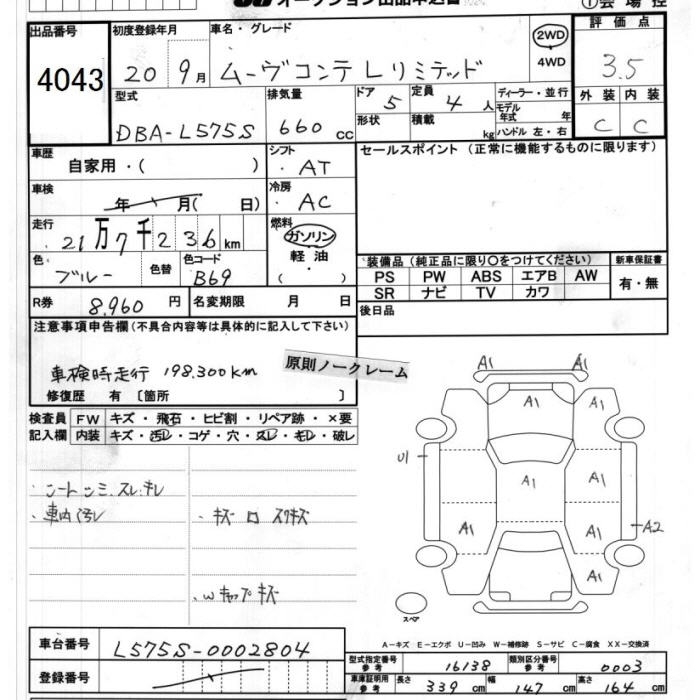 オークション出品申込書
①会場控
出品番号
4043
初度登録年月
20 9月
車名・グレード
ムーヴコンテ Lリミテッド
2WD
4WD
評価点
3.5
型式
DBA-L575S
排気量
660 cc
ドア 5
形状
定員 4 人
積載 kg
ディーラー・並行
モデル年式 年
ハンドル 左・右
外装 内装
C C
車歴
自家用・( )
シフト
AT
セールスポイント (正常に機能するものに限ります)
車検
年 月( 日)
冷房
AC
走行
21万7千236km
燃料
ガソリン
軽油
( ・ )
色
ブルー
色替
色コード
B69
装備品 (純正品に限り〇をつけてください)
PS PW ABS エアB AW
SR ナビ TV カワ
新車保証書
有・無
R券 8,960 円
名変期限 月 日
後日品
注意事項申告欄 (不具合内容等は具体的に記入して下さい)
車検時走行 198.300km
修復歴 有 [箇所 ]
原則ノークレーム
検査員記入欄
FW キズ・飛石・ヒビ割・リペア跡・×要
内装 キズ・汚レ・コゲ・穴・スレ・キレ・破レ
シートシミ.スレ.キレ
車内汚レ
キズ ロ スリキズ
Wキャップキズ
A1 A1
A1 A1 A1
U1 A1 A1
A1 A1 A2
A1
スペア
A-キズ E-エクボ U-凹み W-補修跡 S-サビ C-腐食 XX-交換済
車台番号
L575S-0002804
登録番号
型式指定番号 参考 16138
類別区分番号 参考 0003
車庫証明用 参考 長さ 339 cm 幅 147 cm 高さ 164 cm